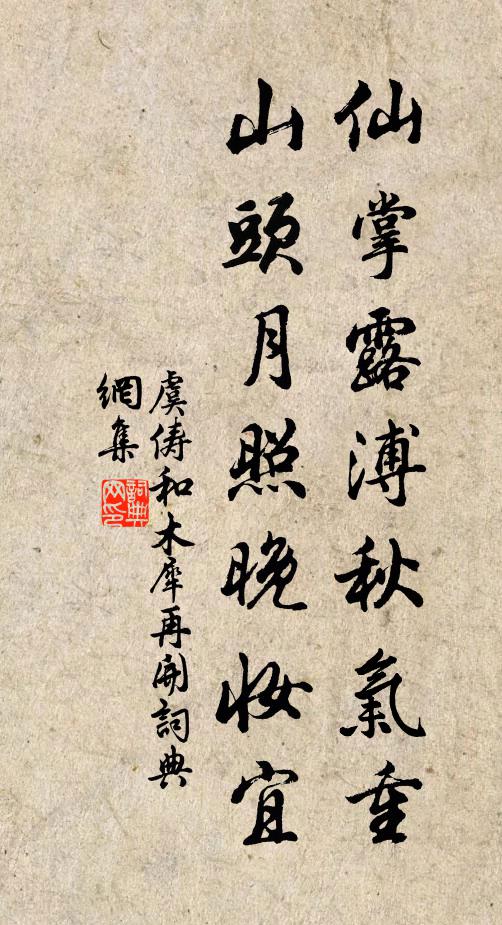 仙掌露溥秋氣重
山頭月照晚妝宜
虞儔和木犀再開詞典
網集
詞典
网印